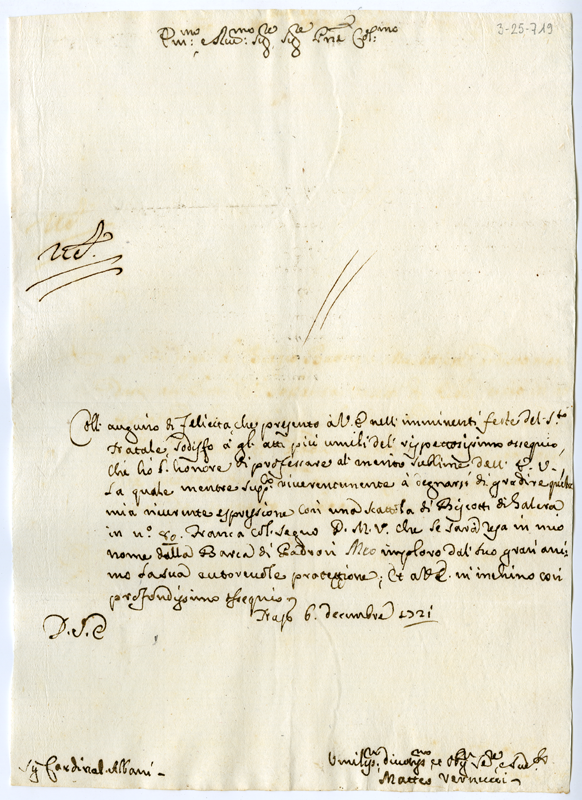 3-25-719
Em:mo e Rev:mo Sig:re Sig:re Pne Col:mo
Coll' augurio di Felicità, che presento à V. E. nell' imminenti feste del S.to
Natale, sodisfo à gli atti più umili del' rispettosissimo ossequio,
che hò l' honore di professare al' merito sublime dell' E. V.
La quale mentre supp.co riverentemente à degnarsi di gradire questa
mia riverente espressione con una scattola di Biscotti di Galera
in n.o 80. Franca col segno D. M. V. che se sarà resa in mio
nome dalla Barca di Padron Meo imploro dal' suo grand' ani-
mo la sua autorevole protettione; Et à V. E. m' inchino con
profondissimo ossequio
6. decembre 1721
D. V. E.
Sig. Cardinal Albani
Umiliss.mo divotiss.mo et Obl.mo Ser.re
Matteo